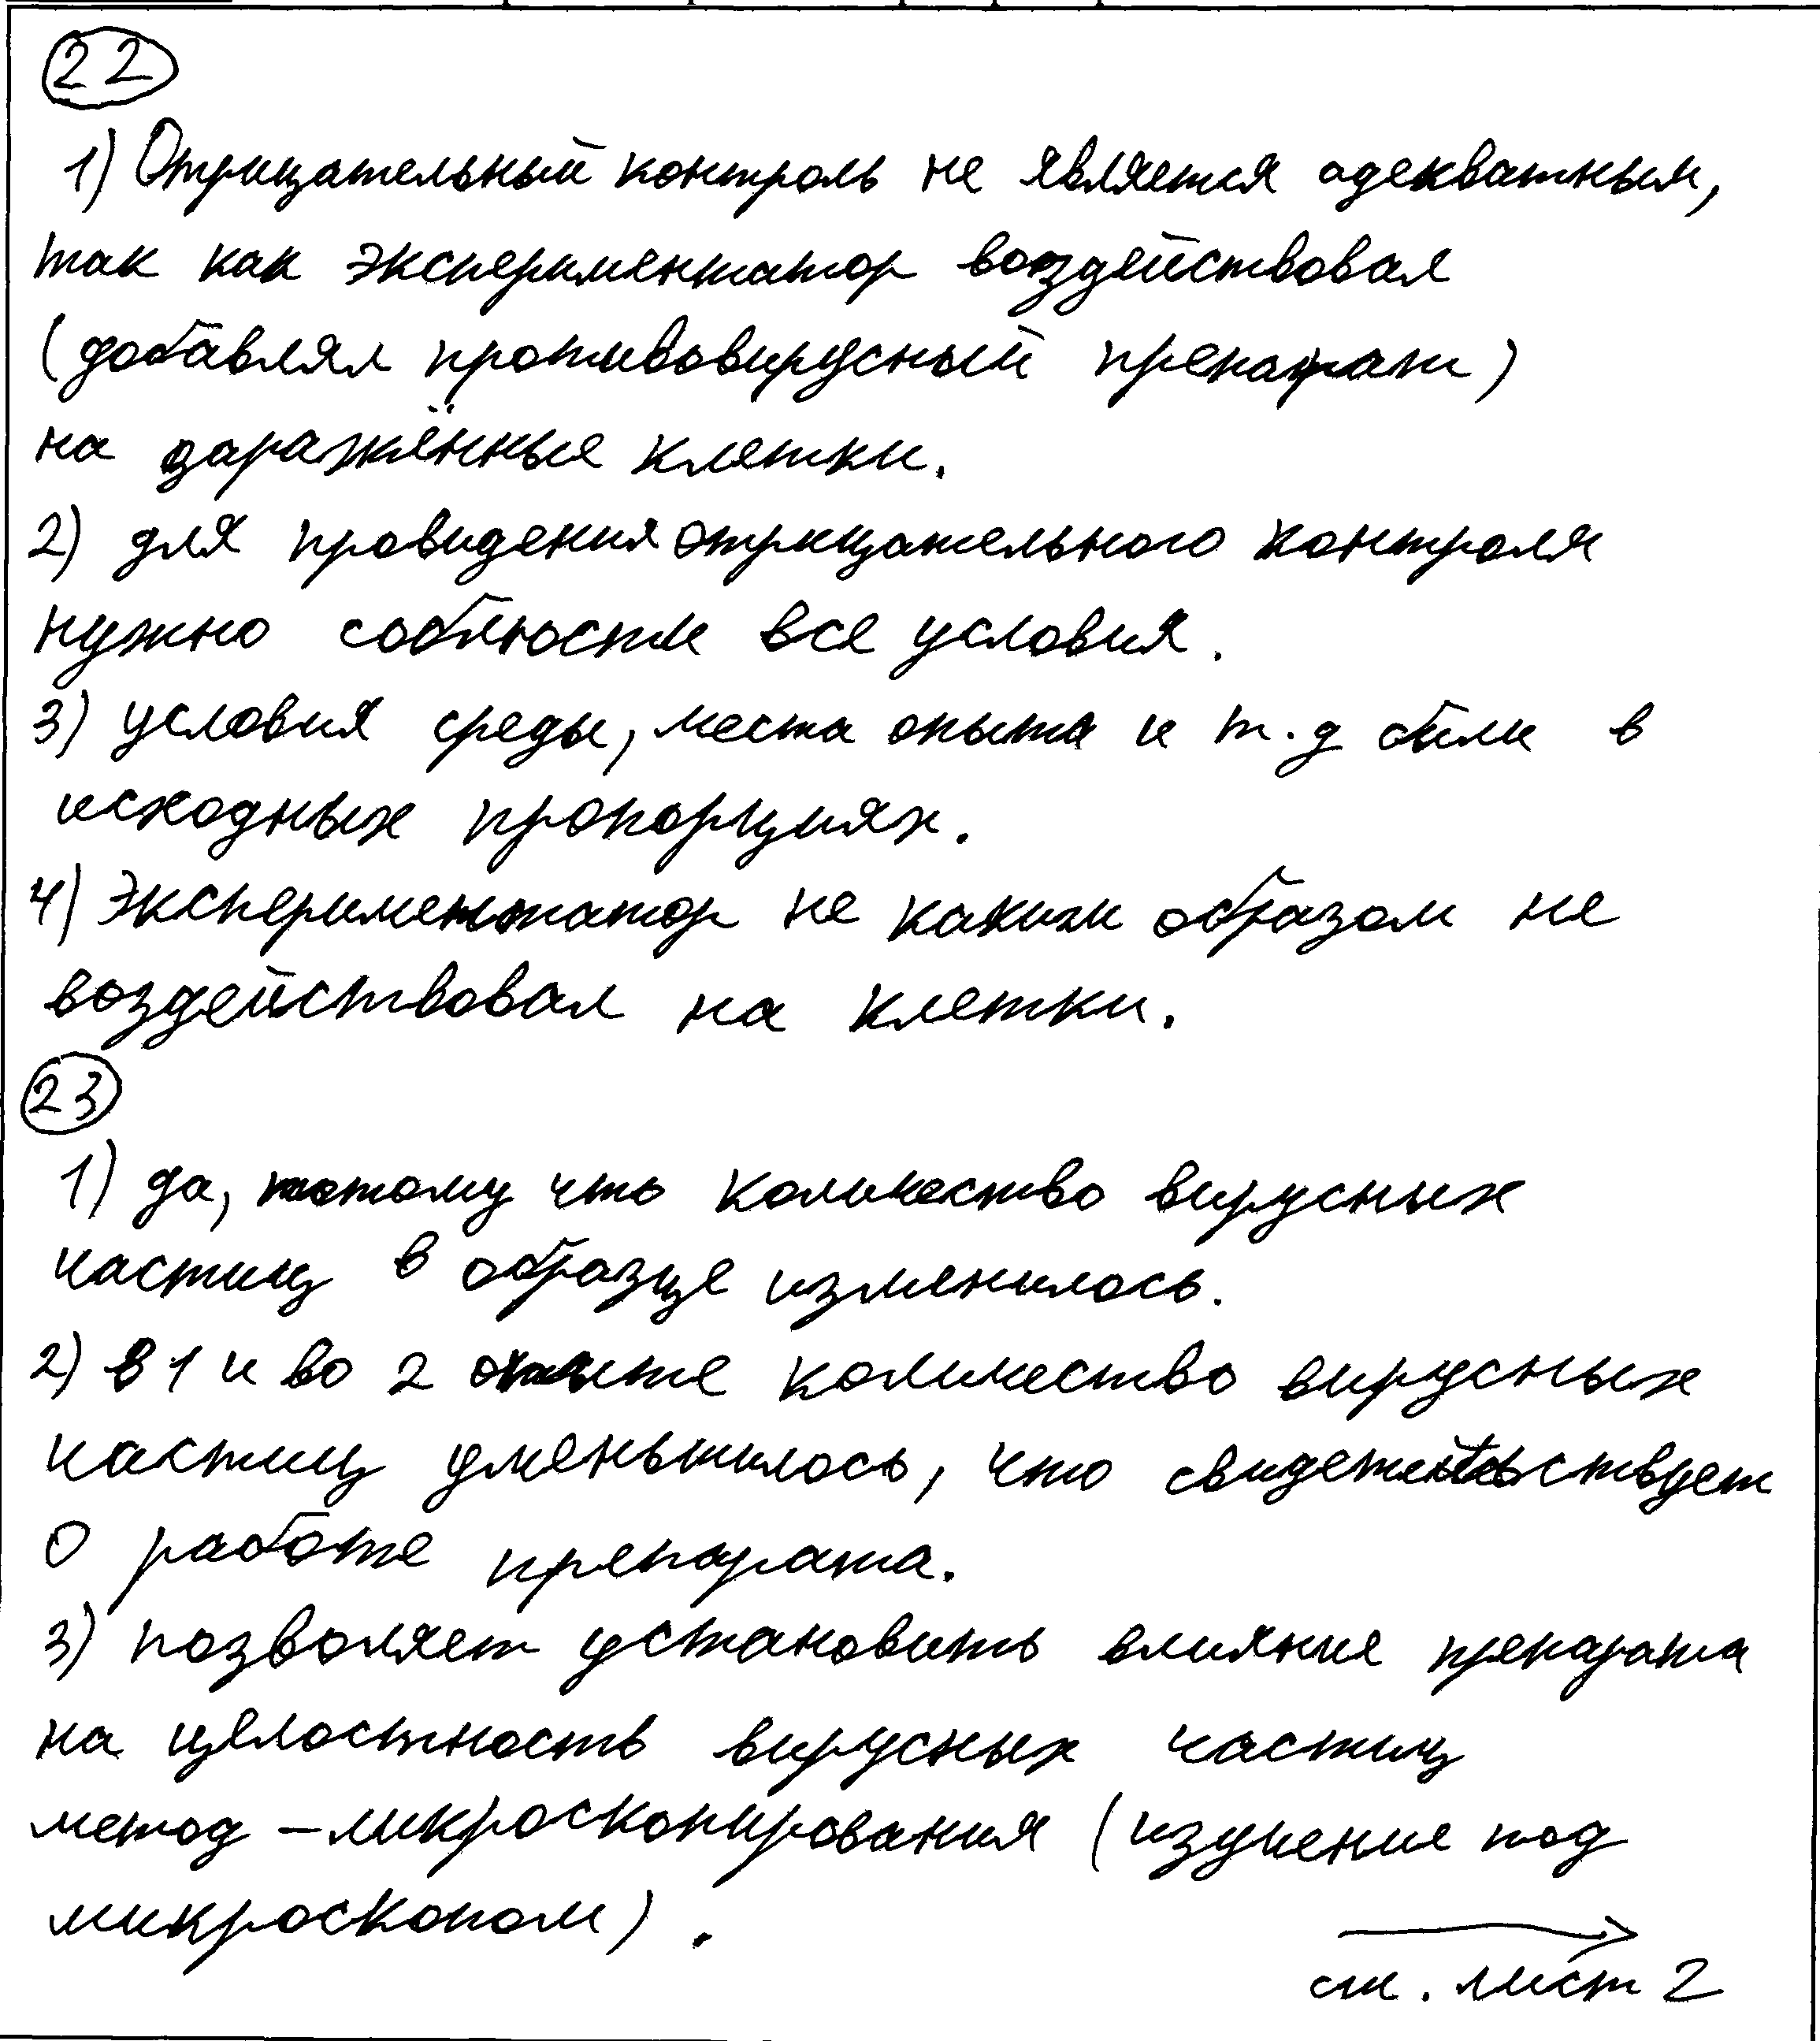 22
1) Отрицательный контроль не является адекватным,
так как экспериментатор воздействовал
(добавлял противовирусный препарат)
на заражённые клетки.
2) для провидения отрицательного контроля
нужно соблюсти все условия.
3) условия среды, места опыта и т.д были в
исходных пропорциях.
4) Экспериментатор не каким образом не
воздействовал на клетки.
23
1) да, потому что количество вирусных
частиц в образце изменилось.
2) в 1 и во 2 опыте количество вирусных
частиц уменьшилось, что свидетельствует
о работе препарата.
3) позволяет установить влияние препарата
на целостность вирусных частиц
метод – микроскопирования (изучение под
микроскопом).
см. лист 2